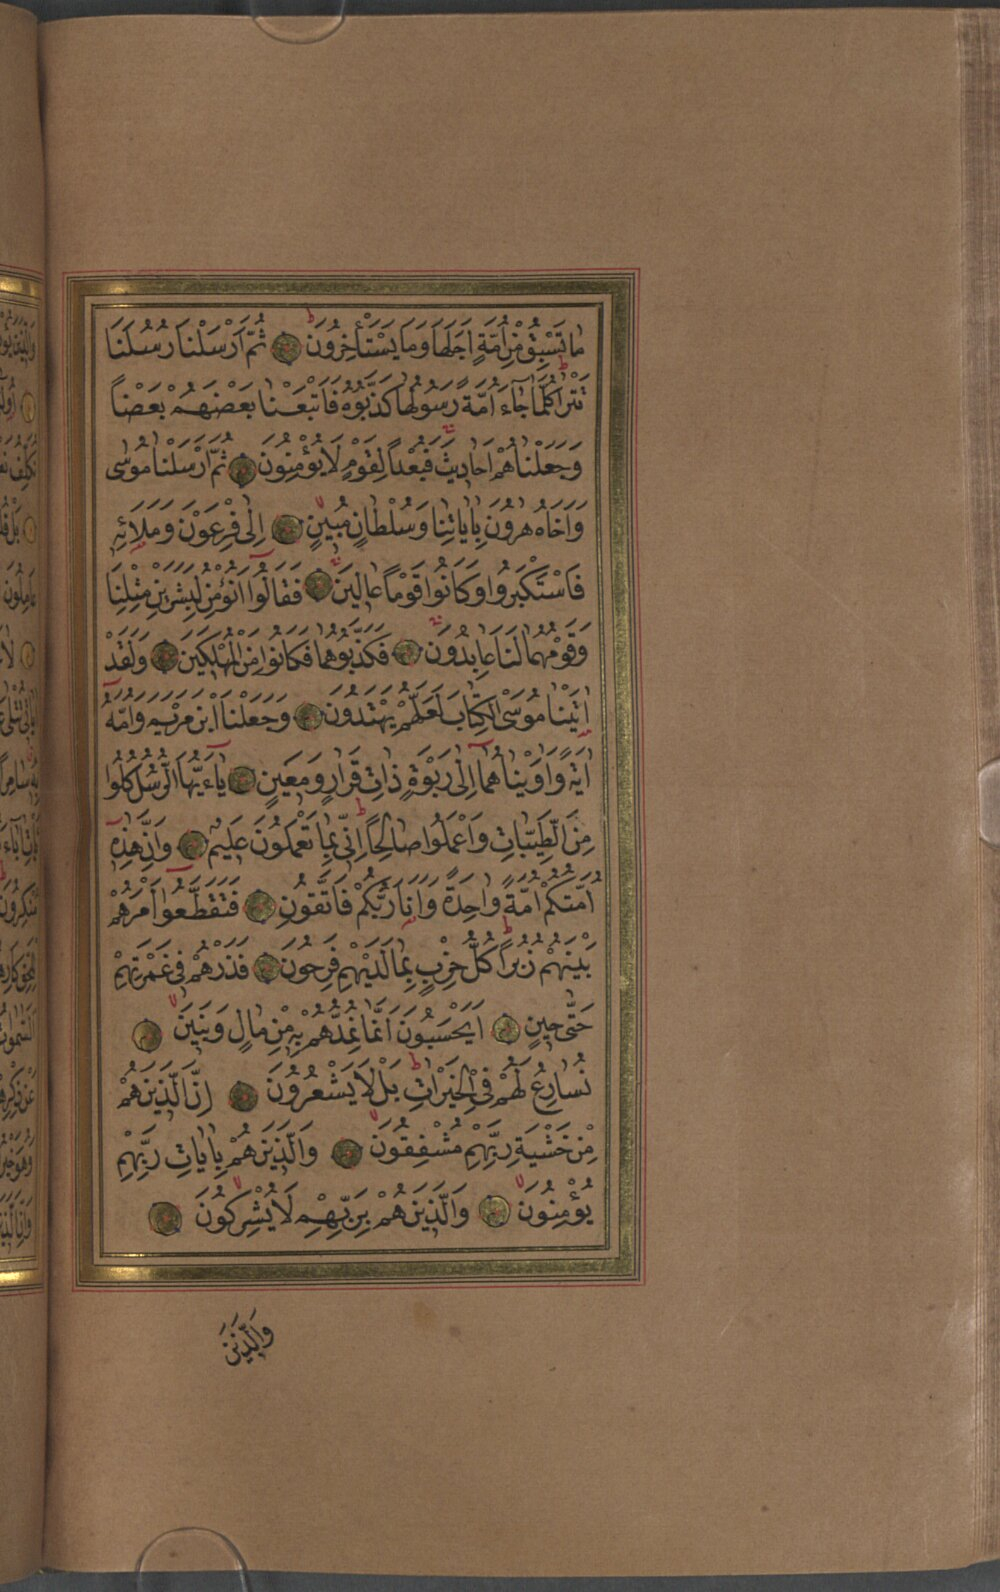 مَا تَسْبِقُ مِنْ اُمَّةٍ اَجَلَهَا وَمَا يَسْتَأْخِرُونَ ثُمَّ اَرْسَلْنَا رُسُلَنَا
تَتْرَا كُلَّمَا جَٓاءَ اُمَّةً رَسُولُهَا كَذَّبُوهُ فَاَتْبَعْنَا بَعْضَهُمْ بَعْضًا
وَجَعَلْنَاهُمْ اَحَادِيثَ فَبُعْدًا لِقَوْمٍ لَا يُؤْمِنُونَ ثُمَّ اَرْسَلْنَا مُوسٰى
وَاَخَاهُ هٰرُونَ بِاٰيَاتِنَا وَسُلْطَانٍ مُبِينٍ اِلٰى فِرْعَوْنَ وَمَلَائِهِ
فَاسْتَكْبَرُوا وَكَانُوا قَوْمًا عَالِينَ فَقَالُٓوا اَنُؤْمِنُ لِبَشَرَيْنِ مِثْلِنَا
وَقَوْمُهُمَا لَنَا عَابِدُونَ فَكَذَّبُوهُمَا فَكَانُوا مِنَ الْمُهْلَكِينَ وَلَقَدْ
اٰتَيْنَا مُوسَى الْكِتَابَ لَعَلَّهُمْ يَهْتَدُونَ وَجَعَلْنَا ابْنَ مَرْيَمَ وَاُمَّهُٓ
اٰيَةً وَاٰوَيْنَاهُمَٓا اِلٰى رَبْوَةٍ ذَاتِ قَرَارٍ وَمَعِينٍ يَٓا اَيُّهَا الرُّسُلُ كُلُوا
مِنَ الطَّيِّبَاتِ وَاعْمَلُوا صَالِحًا اِنِّى بِمَا تَعْمَلُونَ عَلِيمٌ وَاِنَّ هٰذِهِٓ
اُمَّتُكُمْ اُمَّةً وَاحِدَةً وَاَنَا رَبُّكُمْ فَاتَّقُونِ فَتَقَطَّعُٓوا اَمْرَهُمْ
بَيْنَهُمْ زُبُرًا كُلُّ حِزْبٍ بِمَا لَدَيْهِمْ فَرِحُونَ فَذَرْهُمْ فِى غَمْرَتِهِمْ
حَتّٰى حِينٍ اَيَحْسَبُونَ اَنَّمَا نُمِدُّهُمْ بِهِ مِنْ مَالٍ وَبَنِينَ
نُسَارِعُ لَهُمْ فِى الْخَيْرَاتِ بَلْ لَا يَشْعُرُونَ اِنَّ الَّذِينَ هُمْ
مِنْ خَشْيَةِ رَبِّهِمْ مُشْفِقُونَ وَالَّذِينَ هُمْ بِاٰيَاتِ رَبِّهِمْ
يُؤْمِنُونَ وَالَّذِينَ هُمْ بِرَبِّهِمْ لَا يُشْرِكُونَ
وَالَّذِينَ